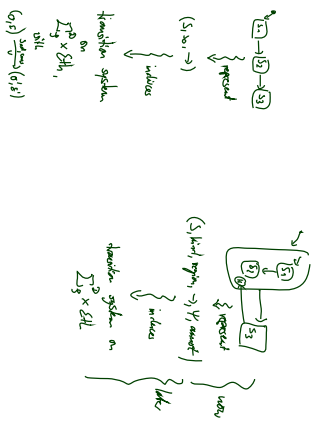 S₁ → S₂ → S₃
represent
(S, s₀, →)
induces
transition system
on
Σ
with
S₁
S₂
H
S₃
represent
(S, kind, region, →, ψ, annot)
induces
transition system on
Σ
now
later